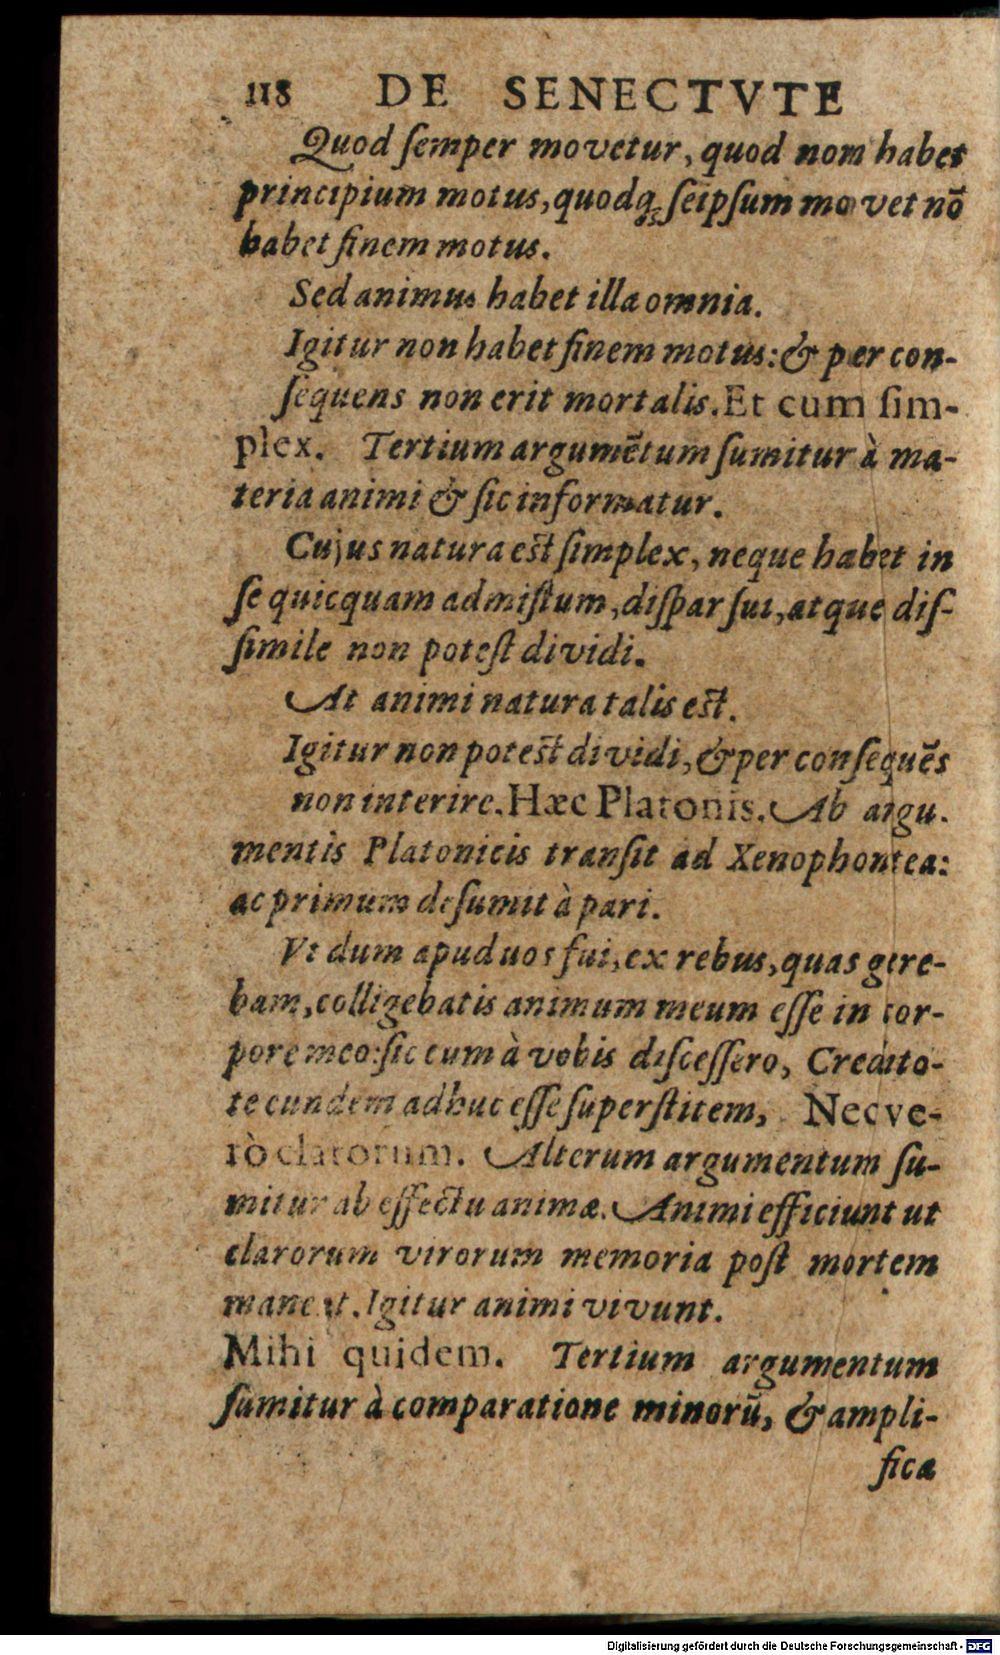 118 DE SENECTVTE
Quod ſemper movetur, quod nom habet
principium motus, quodq; ſeipſum movet nō
habet finem motus.
Sed animus habet illa omnia.
Igitur non habet finem motus: & per con-
ſequens non erit mortalis. Et cum ſim-
plex. Tertium argumētum ſumitur à ma-
teria animi & ſic informatur.
Cujus natura eſt ſimplex, neque habet in
ſe quicquam admiſtum, diſpar ſui, atque diſ-
ſimile non poteſt dividi.
At animi natura talis eſt.
Igitur non poteſt dividi, & per conſequēs
non interire. Hæc Platonis. Ab argu-
mentis Platonicis tranſit ad Xenophontea:
ac primum deſumit à pari.
Vt dum apud uos fui, ex rebus, quas gere-
bam, colligebatis animum meum eſſe in cor-
pore meo: ſic cum à vobis diſceſſero, Credito-
te eundem adhuc eſſe ſuperſtitem, Nec ve-
rò clarorum. Alterum argumentum ſu-
mitur ab effectu animæ. Animi efficiunt ut
clarorum virorum memoria poſt mortem
maneat. Igitur animi vivunt.
Mihi quidem. Tertium argumentum
ſumitur à comparatione minorū, & ampli-
fica
Digitalisierung gefördert durch die Deutsche Forschungsgemeinschaft - DFG